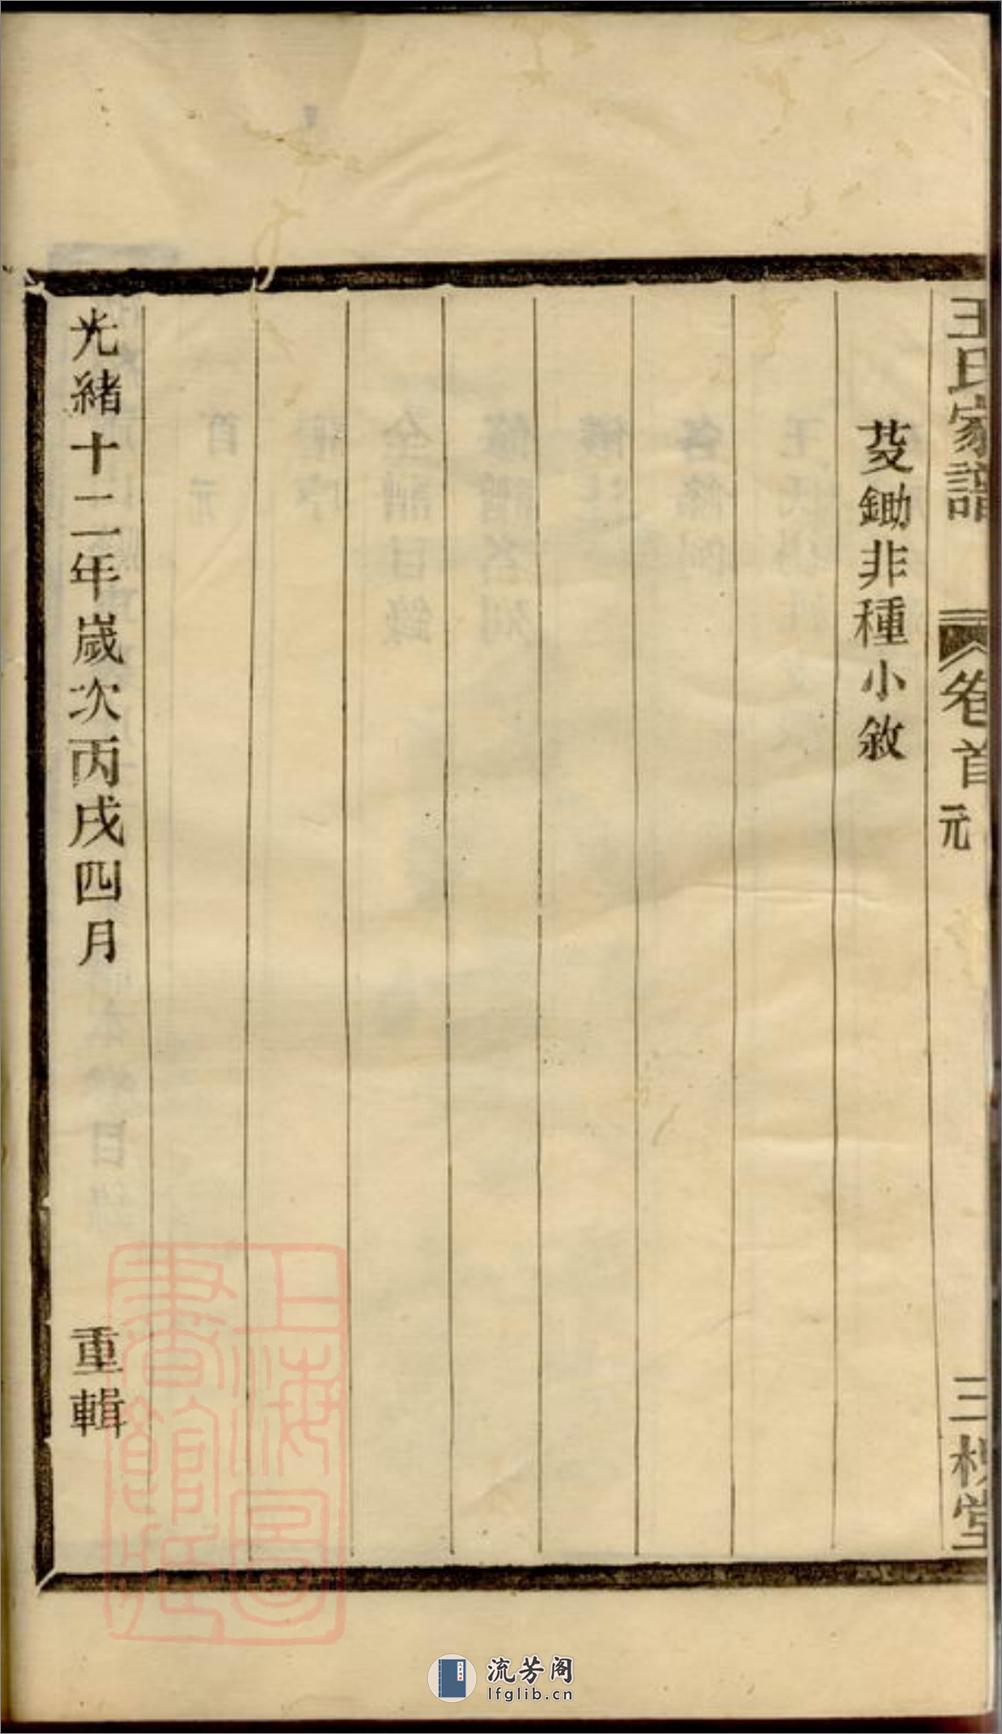 王氏家譜 卷首 元 三槐堂
芟鋤非種小敘
光緒十二年歲次丙戌四月 重輯
上海圖書館藏
流芳阁
lfglib.cn